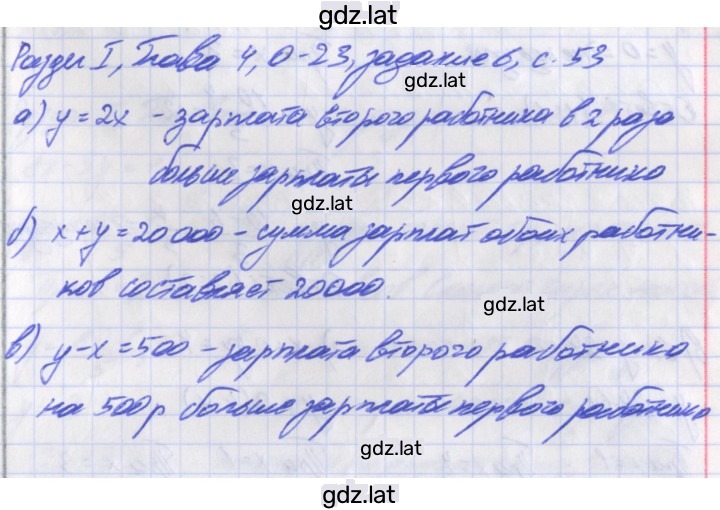 gdz.lat
Раздел I, Глава 4, О-23, задание 6, с. 53
gdz.lat
а) y = 2x - зарплата второго работника в 2 раза
больше зарплаты первого работника
gdz.lat
б) x + y = 20 000 - сумма зарплат обоих работни-
ков составляет 20000.
gdz.lat
в) y - x = 500 - зарплата второго работника
на 500 р больше зарплаты первого работника
gdz.lat
gdz.lat